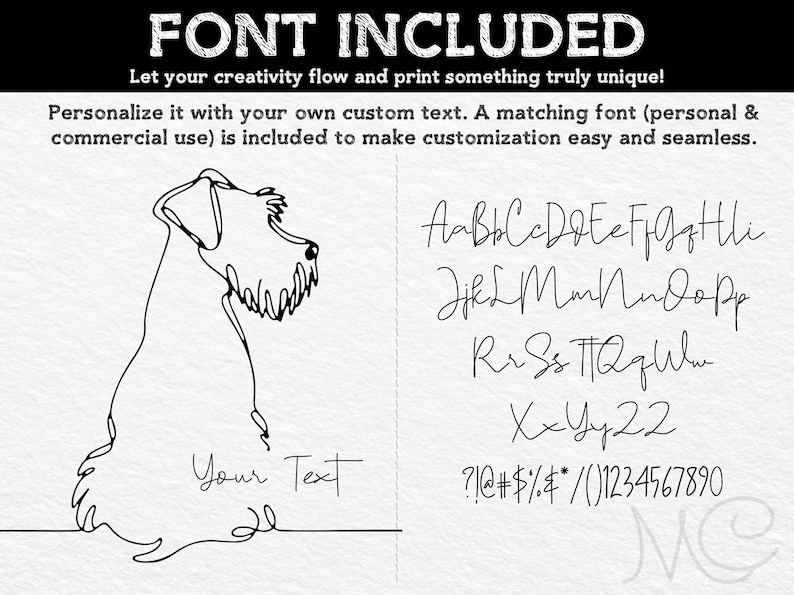 FONT INCLUDED
Let your creativity flow and print something truly unique!
Personalize it with your own custom text. A matching font (personal &
commercial use) is included to make customization easy and seamless.
Your Text
AaBbCcDdEeFfGgHhIi
JjKkLlMmNnOoPp
RrSsTtQqWw
XxYyZz
?!@#$%&*/()1234567890
MC